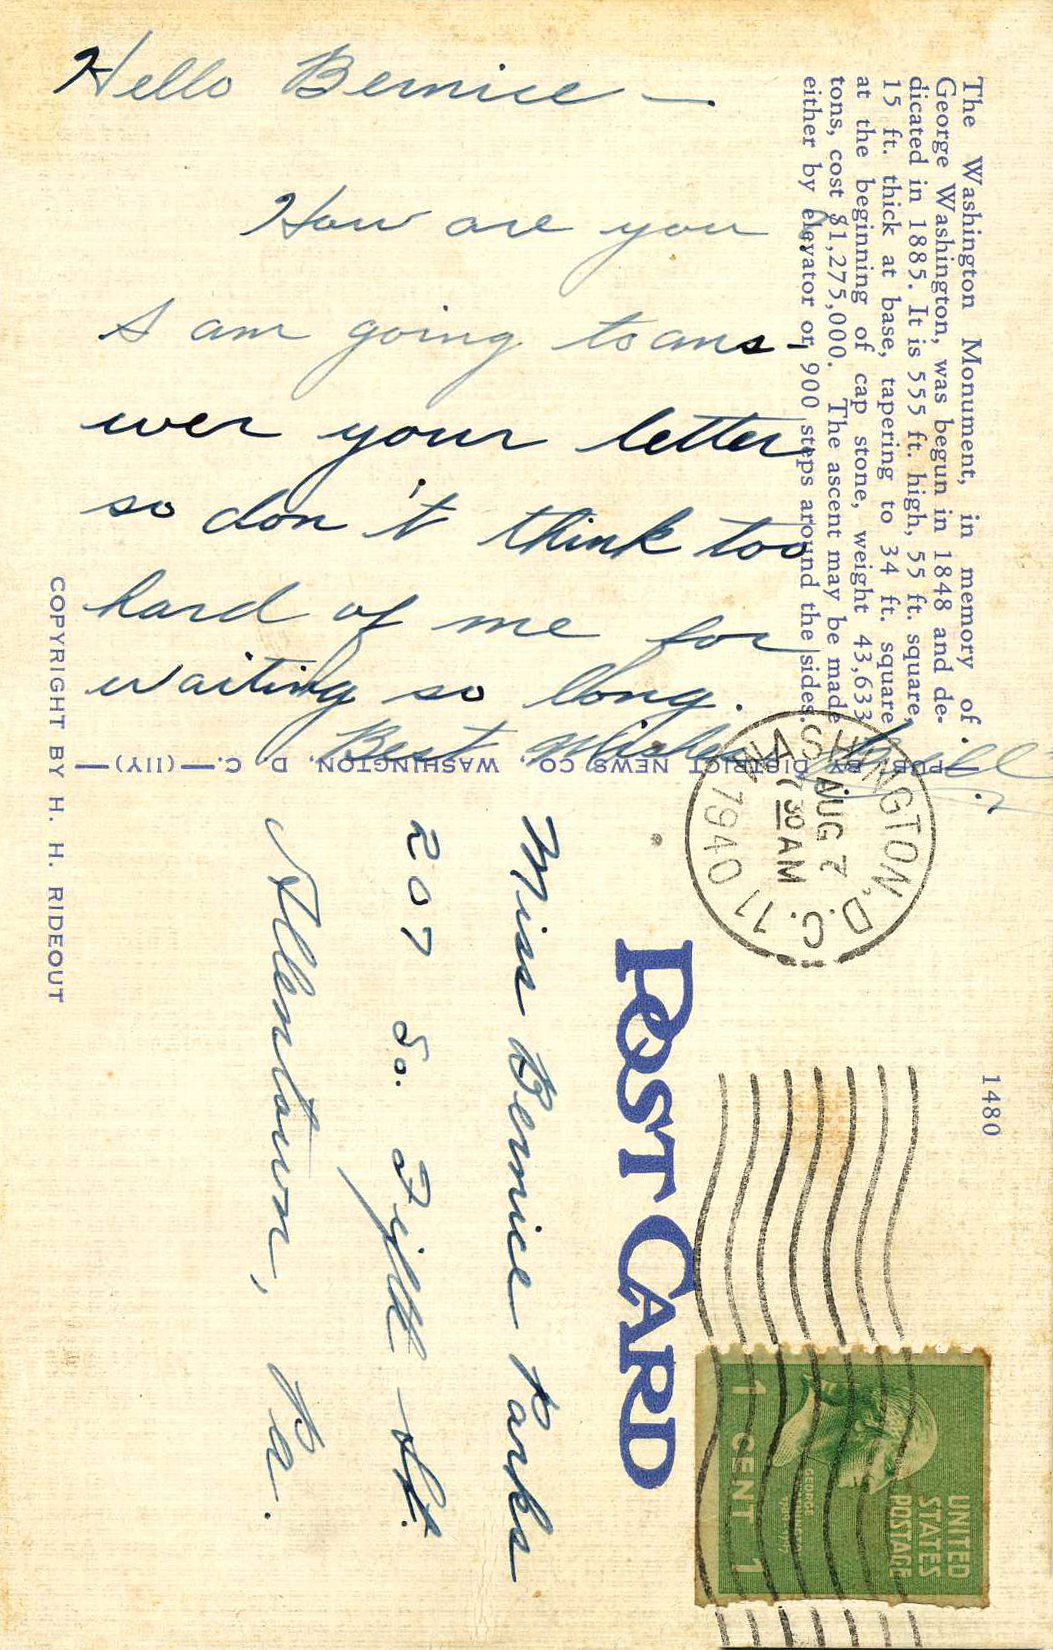 Hello Bernice —
How are you?
I am going to ans-
wer your letter
so don't think too
hard of me for
waiting so long.
Best Wishes
The Washington Monument, in memory of
George Washington, was begun in 1848 and de-
dicated in 1885. It is 555 ft. high, 55 ft. square,
15 ft. thick at base, tapering to 34 ft. square
at the beginning of cap stone, weight 43,633
tons, cost $1,275,000. The ascent may be made
either by elevator or 900 steps around the sides.
PUB. BY DISTRICT NEWS CO., WASHINGTON, D. C.—(11Y)—
COPYRIGHT BY H. H. RIDEOUT
1480
POST CARD
WASHINGTON, D.C. 11
AUG 7
7 30 AM
1940
UNITED
STATES
POSTAGE
GEORGE
WASHINGTON
1 CENT 1
Miss Bernice Parks
207 So. Fifth St.
Allentown, Pa.